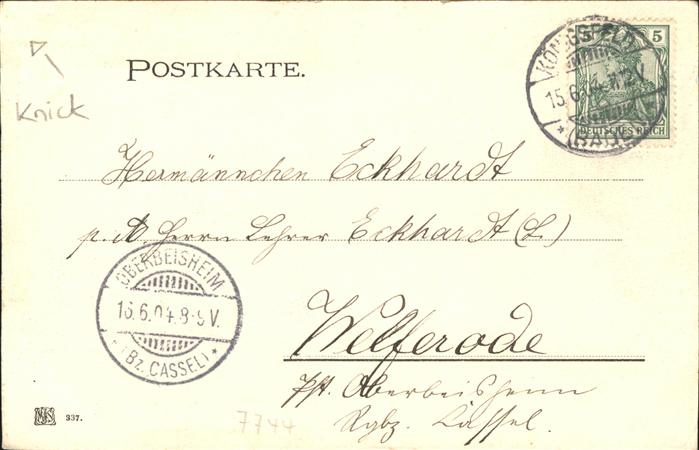 Knick
POSTKARTE.
5
DEUTSCHES REICH
KÖNIGSFELD
15.6.04. 11-12V.
* (BADEN) *
Hermännchen Eckhardt
p. A. Herrn Lehrer Eckhardt (L.)
OBERBEISHEIM
16.6.04.8-9V.
* (Bz. CASSEL) *
Welferode
Pst. Oberbeisheim
Rgbz. Cassel.
337.
7744